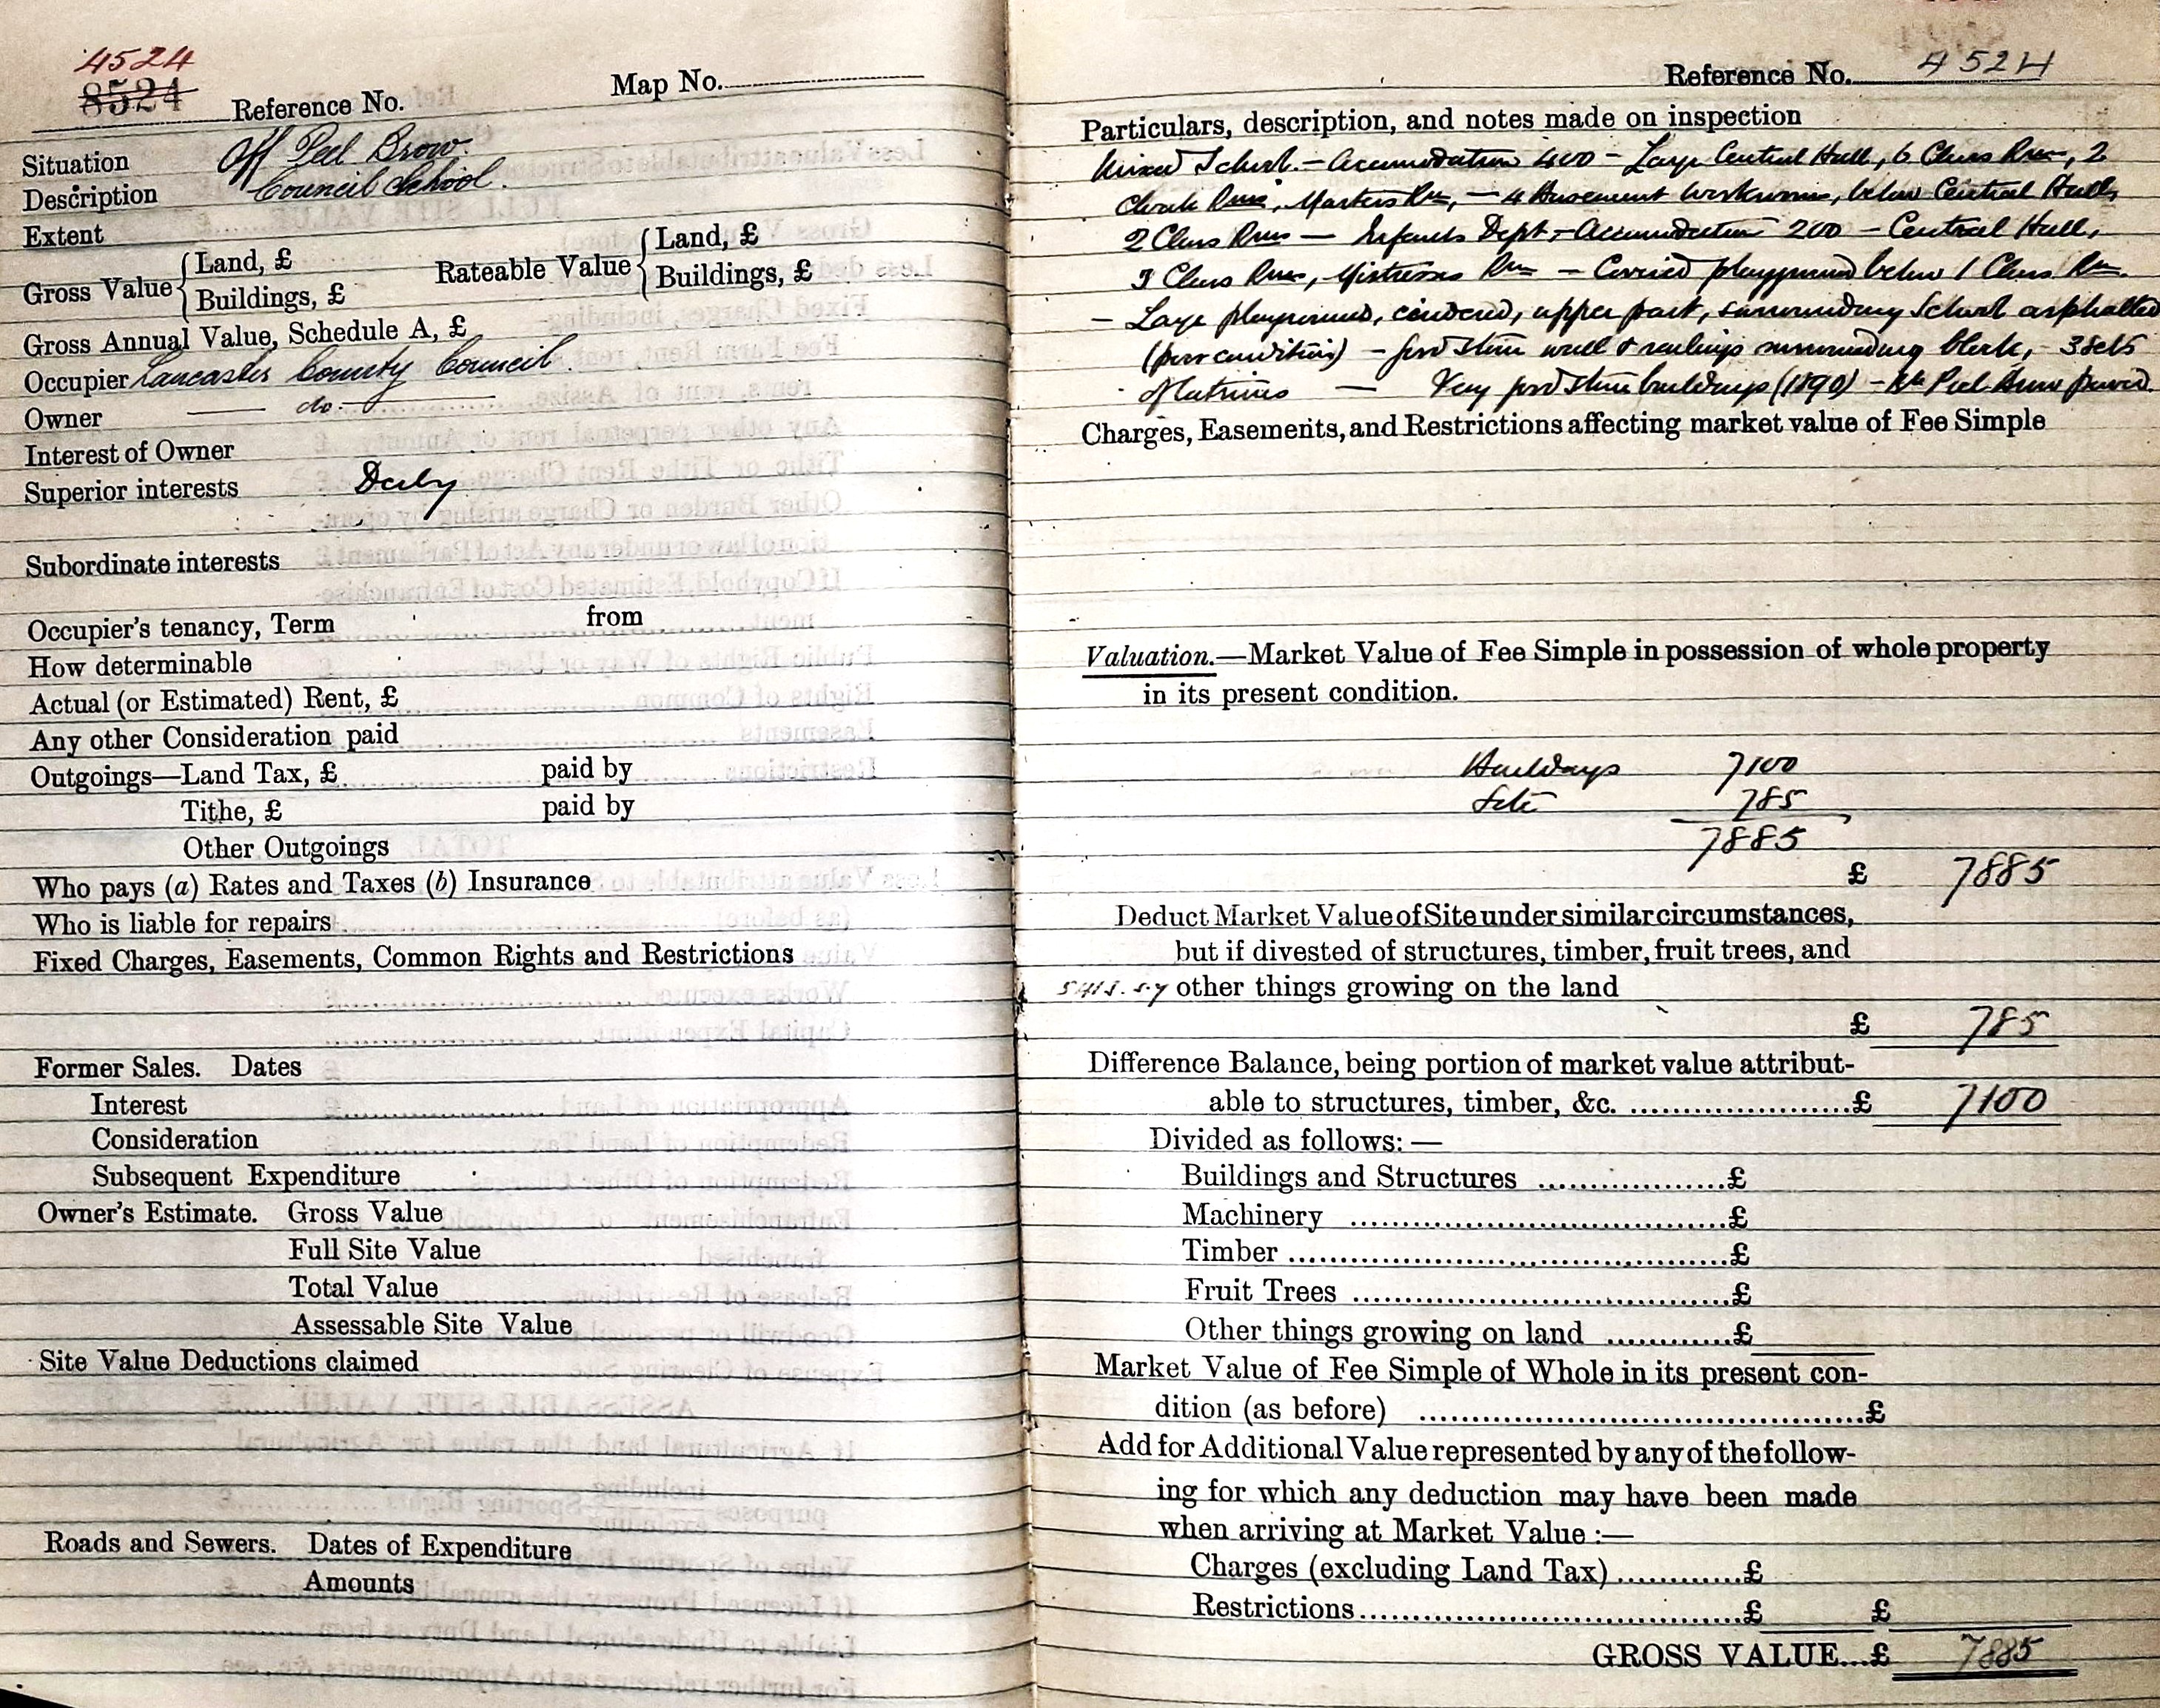 4524
8524 Reference No. Map No.
Situation Off Peel Brow
Description Council School.
Extent
Gross Value { Land, £ Rateable Value { Land, £
Buildings, £ Buildings, £
Gross Annual Value, Schedule A, £
Occupier Lancaster County Council
Owner — do. —
Interest of Owner
Superior interests Derby
Subordinate interests
Occupier's tenancy, Term from
How determinable
Actual (or Estimated) Rent, £
Any other Consideration paid
Outgoings—Land Tax, £ paid by
Tithe, £ paid by
Other Outgoings
Who pays (a) Rates and Taxes (b) Insurance
Who is liable for repairs
Fixed Charges, Easements, Common Rights and Restrictions
Former Sales. Dates
Interest
Consideration
Subsequent Expenditure
Owner's Estimate. Gross Value
Full Site Value
Total Value
Assessable Site Value
Site Value Deductions claimed
Roads and Sewers. Dates of Expenditure
Amounts
Reference No. 4524
Particulars, description, and notes made on inspection
Mixed School. — Accomodation 400 — Large Central Hall, 6 Class Rms, 2
Cloak Rms, Masters Rm, — 4 Basement workrooms, below Central Hall,
2 Class Rms — Infants Dept, — Accomodation 200 — Central Hall,
3 Class Rms, Mistress Rm — Covered playground below 1 Class Rm.
— Large playground, cindered, upper part, surrounding School asphalted
(poor condition) — good stone wall & railings surrounding block, — 3 sets
of latrines — Very good stone buildings (1890) — Peel Brow paved.
Charges, Easements, and Restrictions affecting market value of Fee Simple
Valuation.—Market Value of Fee Simple in possession of whole property
in its present condition.
Buildings 7100
Site 785
7885
£ 7885
Deduct Market Value of Site under similar circumstances,
but if divested of structures, timber, fruit trees, and
s.y other things growing on the land
£ 785
Difference Balance, being portion of market value attribut-
able to structures, timber, &c. ......£ 7100
Divided as follows:—
Buildings and Structures ......£
Machinery ......£
Timber ......£
Fruit Trees ......£
Other things growing on land ......£
Market Value of Fee Simple of Whole in its present con-
dition (as before) ......£
Add for Additional Value represented by any of the follow-
ing for which any deduction may have been made
when arriving at Market Value :—
Charges (excluding Land Tax) ......£
Restrictions ......£ £
GROSS VALUE...£ 7885